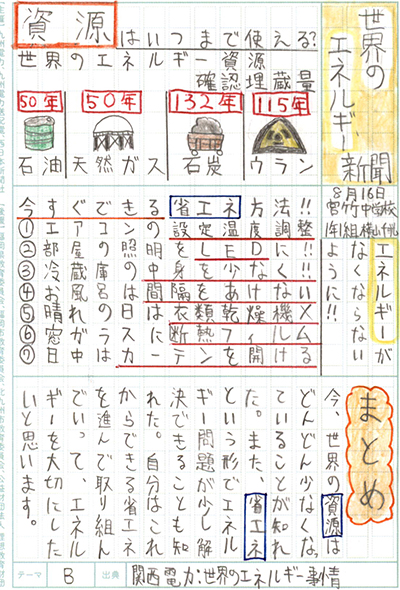 世界の
エネルギー
新聞
資源はいつまで使える?
世界のエネルギー資源
確認埋蔵量
50年 50年 132年 115年
石油 天然ガス 石炭 ウラン
8月16日
宮竹中学校
エネルギーが
なくならない
ように!!
今すぐできる省エネ方法!!
①エアコンの設定温度調整
②部屋の照明をLEDに
③冷蔵庫の中身を少なく!!
④お風呂の間隔をあけない
⑤晴れの日は衣類乾燥機✕
⑥窓ガラスに断熱フィルム
⑦日中はカーテンを開ける
まとめ
今、世界の資源は
どんどん少なくなっ
ていることが知れ
た。また、省エネ
という形でエネル
ギー問題が少し解
決できることも知
れた。自分はこれ
からできる省エネ
を進んで取り組ん
でいって、エネル
ギーを大切にした
いと思います。
テーマ B 出典 関西電力:世界のエネルギー事情